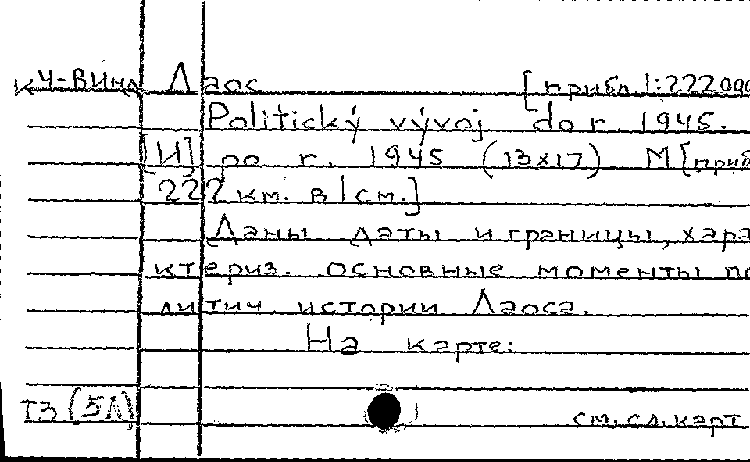 кч-Винд Лаос [прибл. 1:222 000
Politický vývoj do r. 1945.
[И] po r. 1945 (13x17). М[приб
222 км. в 1 см.]
Даны даты и границы, хара
ктериз. основные моменты по
литич. истории Лаоса.
На карте:
ТЗ (5Л) см. сл. карт